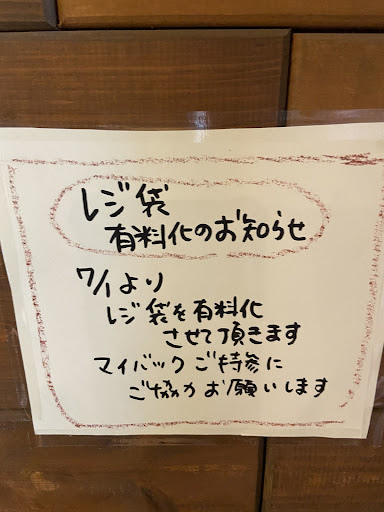 レジ袋
有料化のお知らせ
7/1より
レジ袋を有料化
させて頂きます
マイバックご持参に
ご協力お願いします